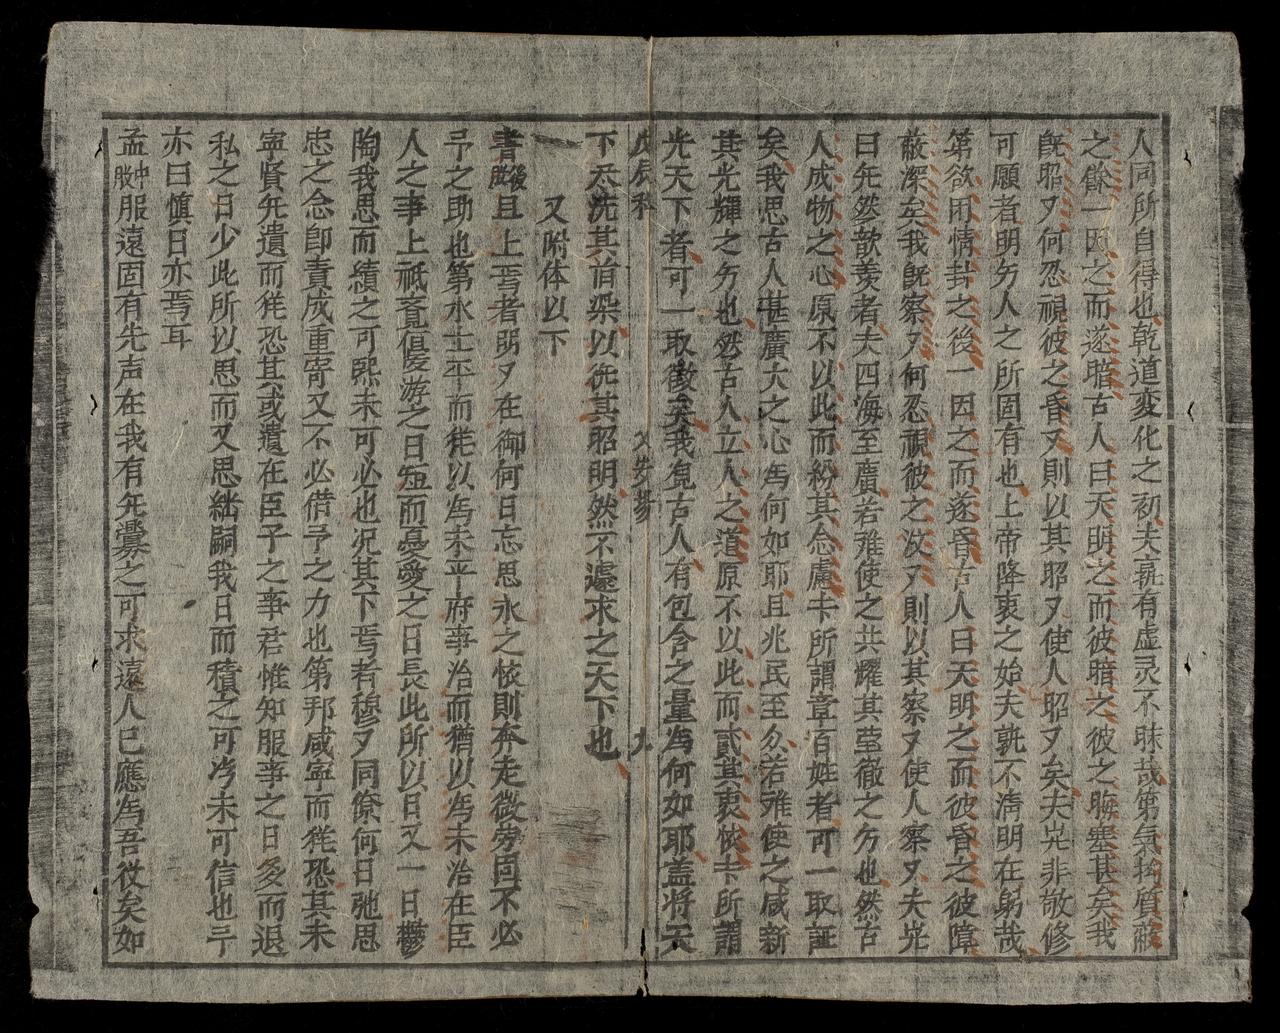 人同所自得也乾道変化之初夫孰有虚灵不昧哉第氣拘質蔽
之餘一因之而遂暗古人曰天明之而彼暗之彼之晦塞甚矣我
既昭又何忍視彼之昏又則以其昭又使人昭又矣夫岂非敬修
可願者明匇人之所固有也上帝降衷之始夫孰不清明在躬哉
第欲用情卦之後一因之而遂昏古人曰天明之而彼昏之彼障
蔽深矣我既察又何忍視彼之汶又則以其察又使人察又夫岂
曰旡然歆羡者夫四海至廣若难使之共耀其莹徹之匇也然古
人成物之心原不以此而紛其念慮卡所謂章百姓者可一取証
矣我思古人甚廣大之心為何如耶且兆民至众若难使之咸新
其光輝之匇也然古人立人之道原不以此而貳其衷恢卡所謂
光天下者可一取徵矣我覓古人有包含之量為何如耶盖将天
下夭洗其旧染以徃其昭明然不遽求之天下也
戊辰科 九
又附体以下
書後股且上焉者明又在御何日忘思永之恢則奔走微劳固不必
予之助也第水土平而徃以為未平府事治而猶以為未治在臣
人之事上祗吝覓優游之日短而憂愛之日長此所以日又一日欝
陶我思而績之可熙未可必也况其下焉者穆又同僚何日弛思
忠之念即責成重寄又不必借予之力也第邦咸寧而徃恐其未
寧賢旡遺而徃恐其或遺在臣子之事君惟知服事之日多而退
私之日少此所以思而又思絀嗣我日而積之可冷未可信也亍
亦曰慎日亦焉耳
孟中股服遠固有先声在我有旡釁之可求遠人已應為吾役矣如